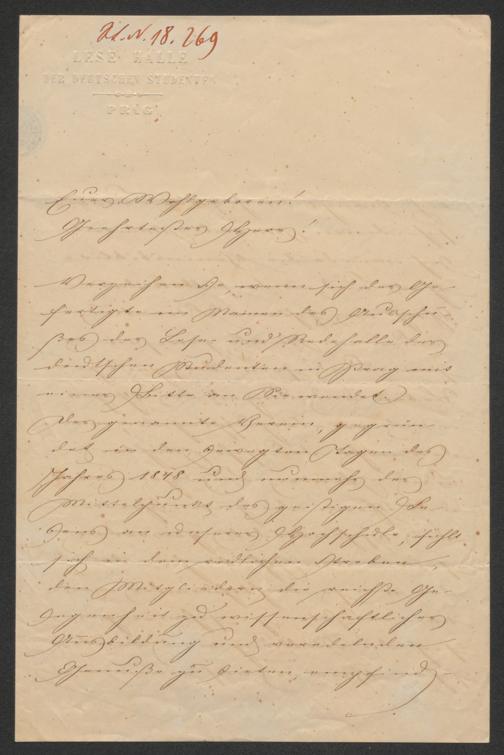 I.N. 18.269
LESE-HALLE
DER DEUTSCHEN STUDENTEN
PRAG
Euer Wohlgeboren!
Geehrtester Herr!
Verzeihen Sie, wenn sich der Ge-
fertigte im Namen des Ausschu-
ßes der Lese- und Redehalle der
deutschen Studenten in Prag mit
einer Bitte an Sie wendet.
Der genannte Verein, gegrün-
det in den bewegten Tagen des
Jahres 1848 und nunmehr der
Mittelpunkt des geistigen Le-
bens an unserer Hochschule, fühlt
sich in dem redlichen Streben,
den Mitgliedern die reichste Ge-
legenheit zu wissenschaftlicher
Ausbildung und veredelnden
Genuße zu bieten, empfind-